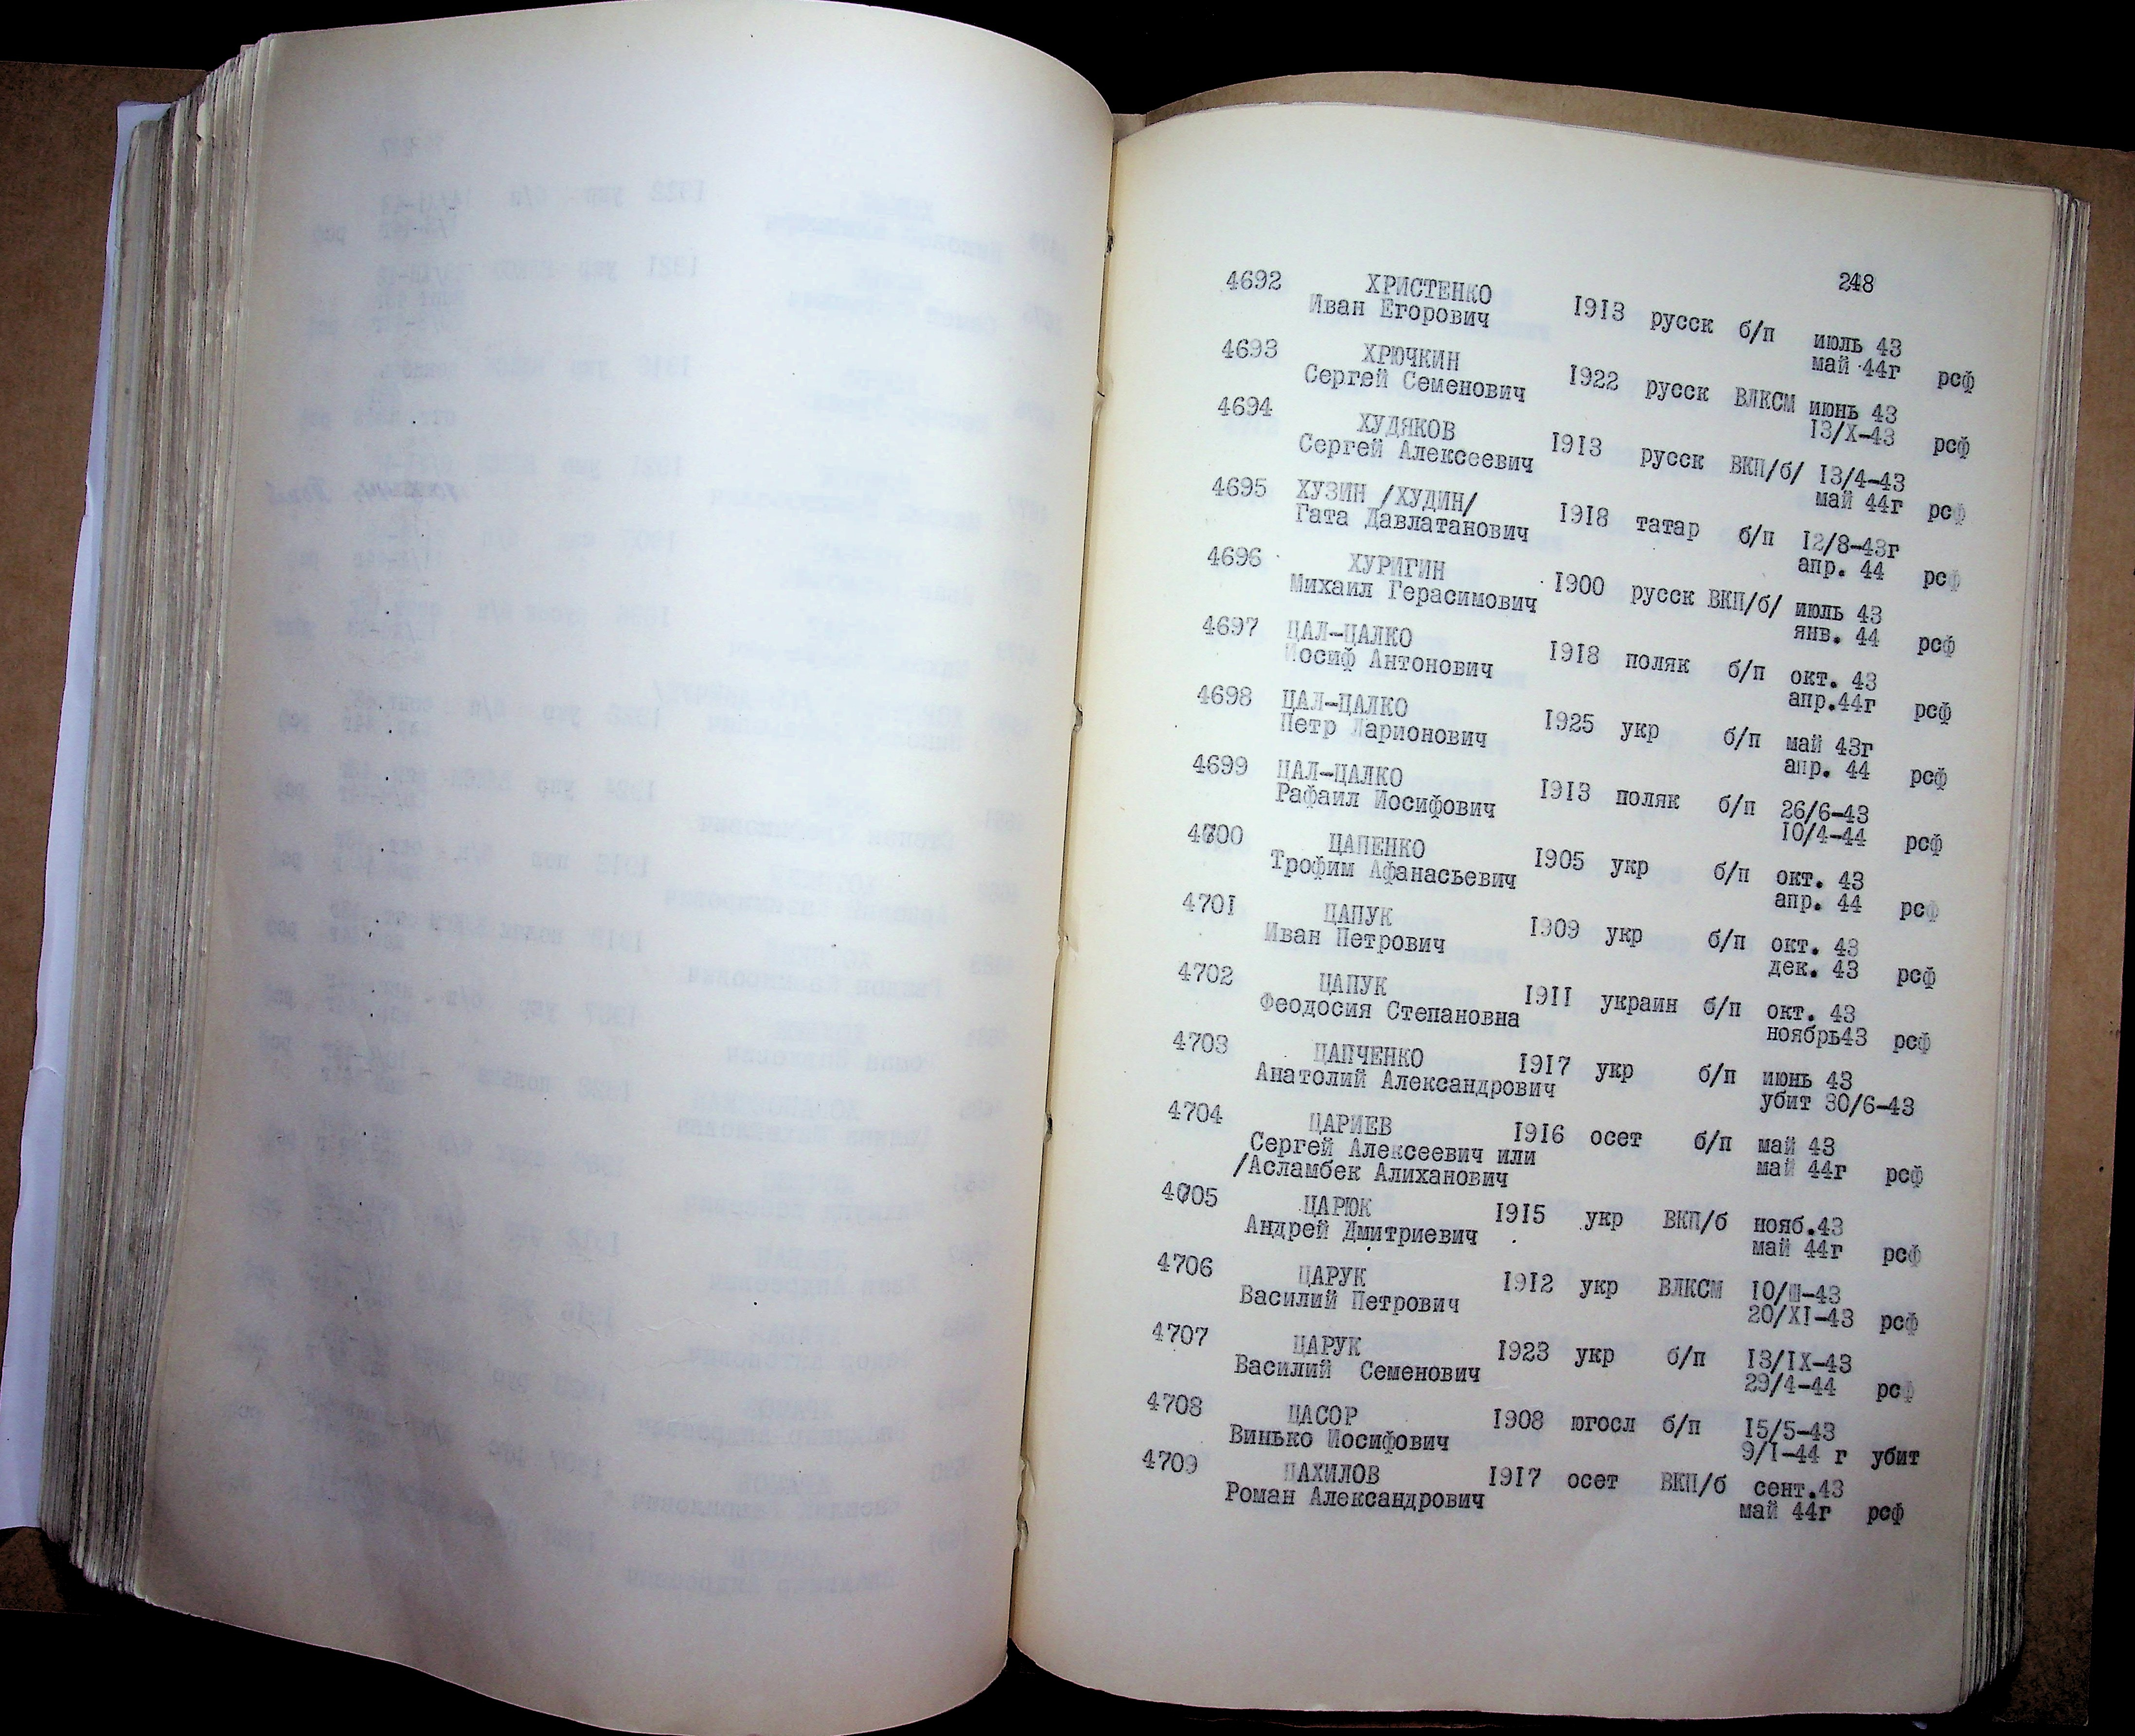 248
4692 ХРИСТЕНКО 1913 русск б/п июль 43
Иван Егорович май 44г рсф
4693 ХРЮЧКИН 1922 русск ВЛКСМ июнь 43
Сергей Семенович 13/X-43 рсф
4694 ХУДЯКОВ 1913 русск ВКП/б/ 13/4-43
Сергей Алексеевич май 44г рсф
4695 ХУЗИН /ХУДИН/ 1918 татар б/п 12/8-43г
Гата Давлатанович апр. 44 рсф
4696 ХУРИГИН 1900 русск ВКП/б/ июль 43
Михаил Герасимович янв. 44 рсф
4697 ЦАЛ-ЦАЛКО 1918 поляк б/п окт. 43
Иосиф Антонович апр.44г рсф
4698 ЦАЛ-ЦАЛКО 1925 укр б/п май 43г
Петр Ларионович апр. 44 рсф
4699 ЦАЛ-ЦАЛКО 1913 поляк б/п 26/6-43
Рафаил Иосифович 10/4-44 рсф
4700 ЦАПЕНКО 1905 укр б/п окт. 43
Трофим Афанасьевич апр. 44 рсф
4701 ЦАПУК 1909 укр б/п окт. 43
Иван Петрович дек. 43 рсф
4702 ЦАПУК 1911 украин б/п окт. 43
Феодосия Степановна ноябрь43 рсф
4703 ЦАПЧЕНКО 1917 укр б/п июнь 43
Анатолий Александрович убит 30/6-43
4704 ЦАРИЕВ 1916 осет б/п май 43
Сергей Алексеевич или май 44г рсф
/Асламбек Алиханович
4705 ЦАРЮК 1915 укр ВКП/б нояб.43
Андрей Дмитриевич май 44г рсф
4706 ЦАРУК 1912 укр ВЛКСМ 10/Ш-43
Василий Петрович 20/XI-43 рсф
4707 ЦАРУК 1923 укр б/п 13/IX-43
Василий Семенович 29/4-44 рсф
4708 ЦАСОР 1908 югосл б/п 15/5-43
Винько Иосифович 9/I-44 г убит
4709 ЦАХИЛОВ 1917 осет ВКП/б сент.43
Роман Александрович май 44г рсф